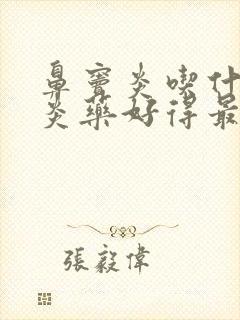 鼻竇炎喫什
炎藥好得最
張毅偉